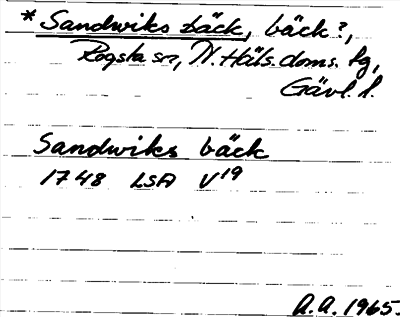 * Sandwiks bäck, bäck?,
Rogsta sn, N. Häls. doms. fg,
Gävl. l.
Sandwiks bäck
1748 LSA V19
A.A. 1965.